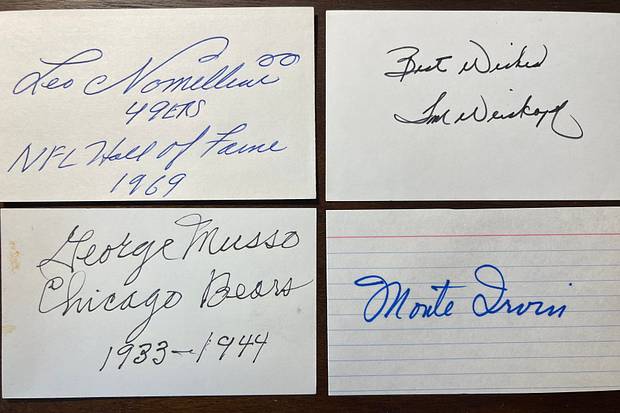 Leo Nomellini
49ERS
NFL Hall of Fame
1969
Best Wishes
Tom Weiskopf
George Musso
Chicago Bears
1933-1944
Monte Irvin